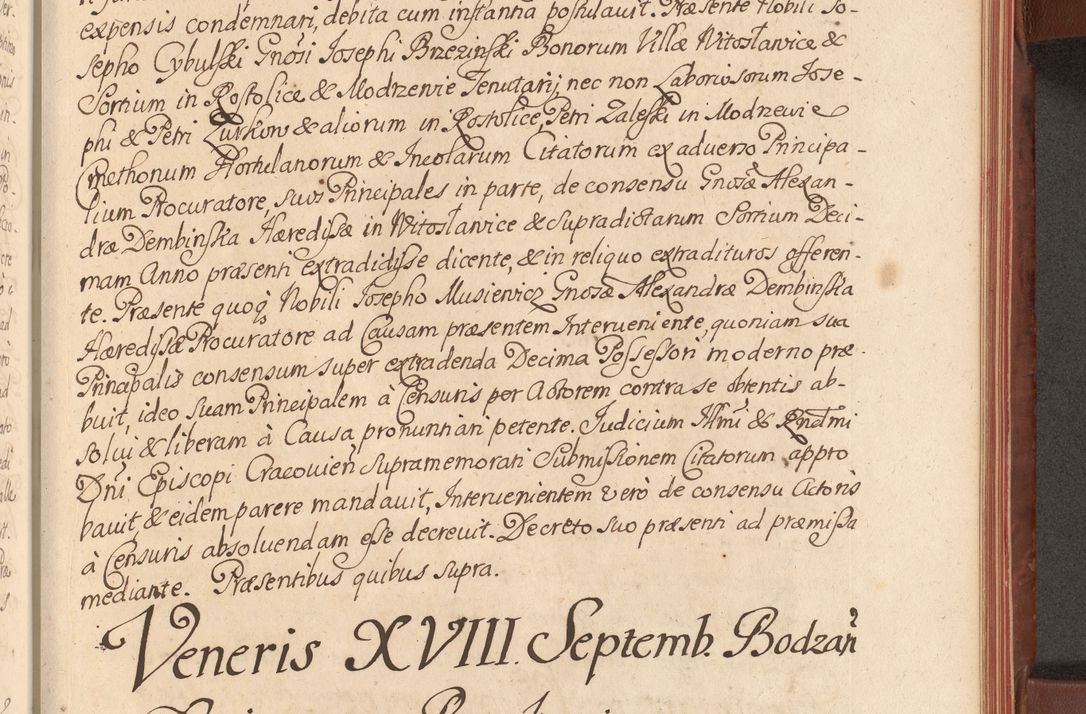 expensis condemnari, debita cum instantia postulavit. Præsente Nobili Jo-
sepho Cybulski Gnosi Josephi Brzezinski Bonorum Villæ Witosławice &
Sortium in Rostolice & Modrzewie Tenutarij, nec non Laboriosorum Jose-
phi & Petri Zurkow & aliorum in Rostolice, Petri Zaleski in Modrzewie
Cmethonum Hortulanorum & Incolarum Citatorum ex adverso Principa-
lium Procuratore, suos Principales in parte, de consensu Gnosæ Alexan-
dræ Dembinska Hæredissæ in Witosławice & supradictarum Sortium Deci-
mam Anno præsenti extradidisse dicente, & in reliquo extradituros offeren-
te. Præsente quoq, Nobili Josepho Musienicz Gnosæ Alexandræ Dembinska
Hæredissæ Procuratore ad Causam præsentem Interveniente, quoniam sua
Principalis consensum super extradenda Decima Possessori moderno præ-
buit, ideo suam Principalem à Censuris per Actorem contra se obtentis ab-
solvi & liberam à Causa pronuntiari petente. Judicium Illmi & Rndmi
Dni Episcopi Cracovien supramemorati Submissionem Citatorum appro
bavit, & eidem parere mandavit, Intervenientem verò de consensu Actoris
à Censuris absolvendam esse decrevit. Decreto suo præsenti ad præmissa
mediante. Præsentibus quibus supra.
Veneris XVIII. Septemb. Bodzan